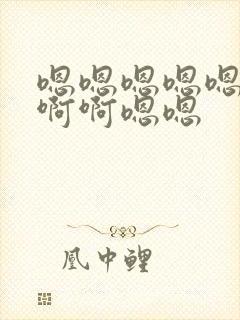 嗯嗯嗯嗯嗯
啊啊嗯嗯
凰中鲤